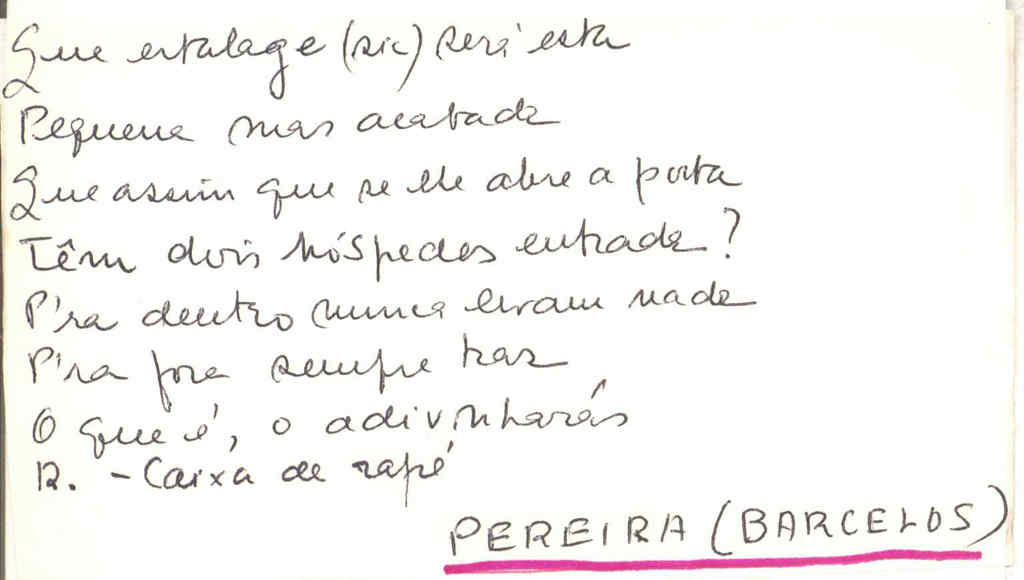 Que estalage (sic) será esta
Pequena mas acabada
Que assim que se lhe abre a porta
Têm dois hóspedes entrada?
P'ra dentro nunca levam nada
P'ra fora sempre traz
O que é, o adivinharás
R. - Caixa de rapé
PEREIRA (BARCELOS)